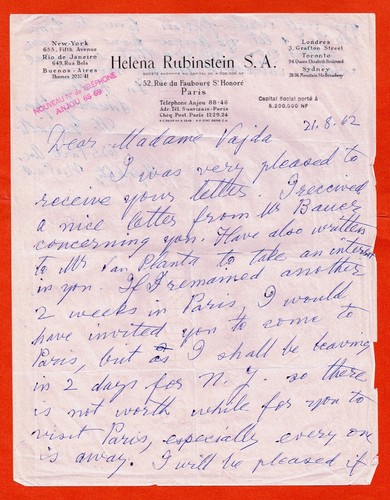 New-York
655, Fifth Avenue
Rio de Janeiro
Buenos-Aires
NOUVEAU Nº DE TELEPHONE
ANJOU 65 69
Helena Rubinstein S. A.
52, Rue du Faubourg St Honoré
Paris
Téléphone Anjou 88-46
Adr. Tél. Suavizais-Paris
Chèq. Post. Paris 1129.24
Londres
3, Grafton Street
Toronto
Sydney
Capital Social porté à
8.200.000 NF
21.8.62
Dear Madame Vajda
I was very pleased to
receive your letter. I received
a nice letter from Mr Bauer
concerning you. Have also written
to Mr van Planta to take an interest
in you. If I remained another
2 weeks in Paris, I would
have invited you to come to
Paris, but as I shall be leaving
in 2 days for N. Y. so there
is not worth while for you to
visit Paris, especially every one
is away. I will be pleased if